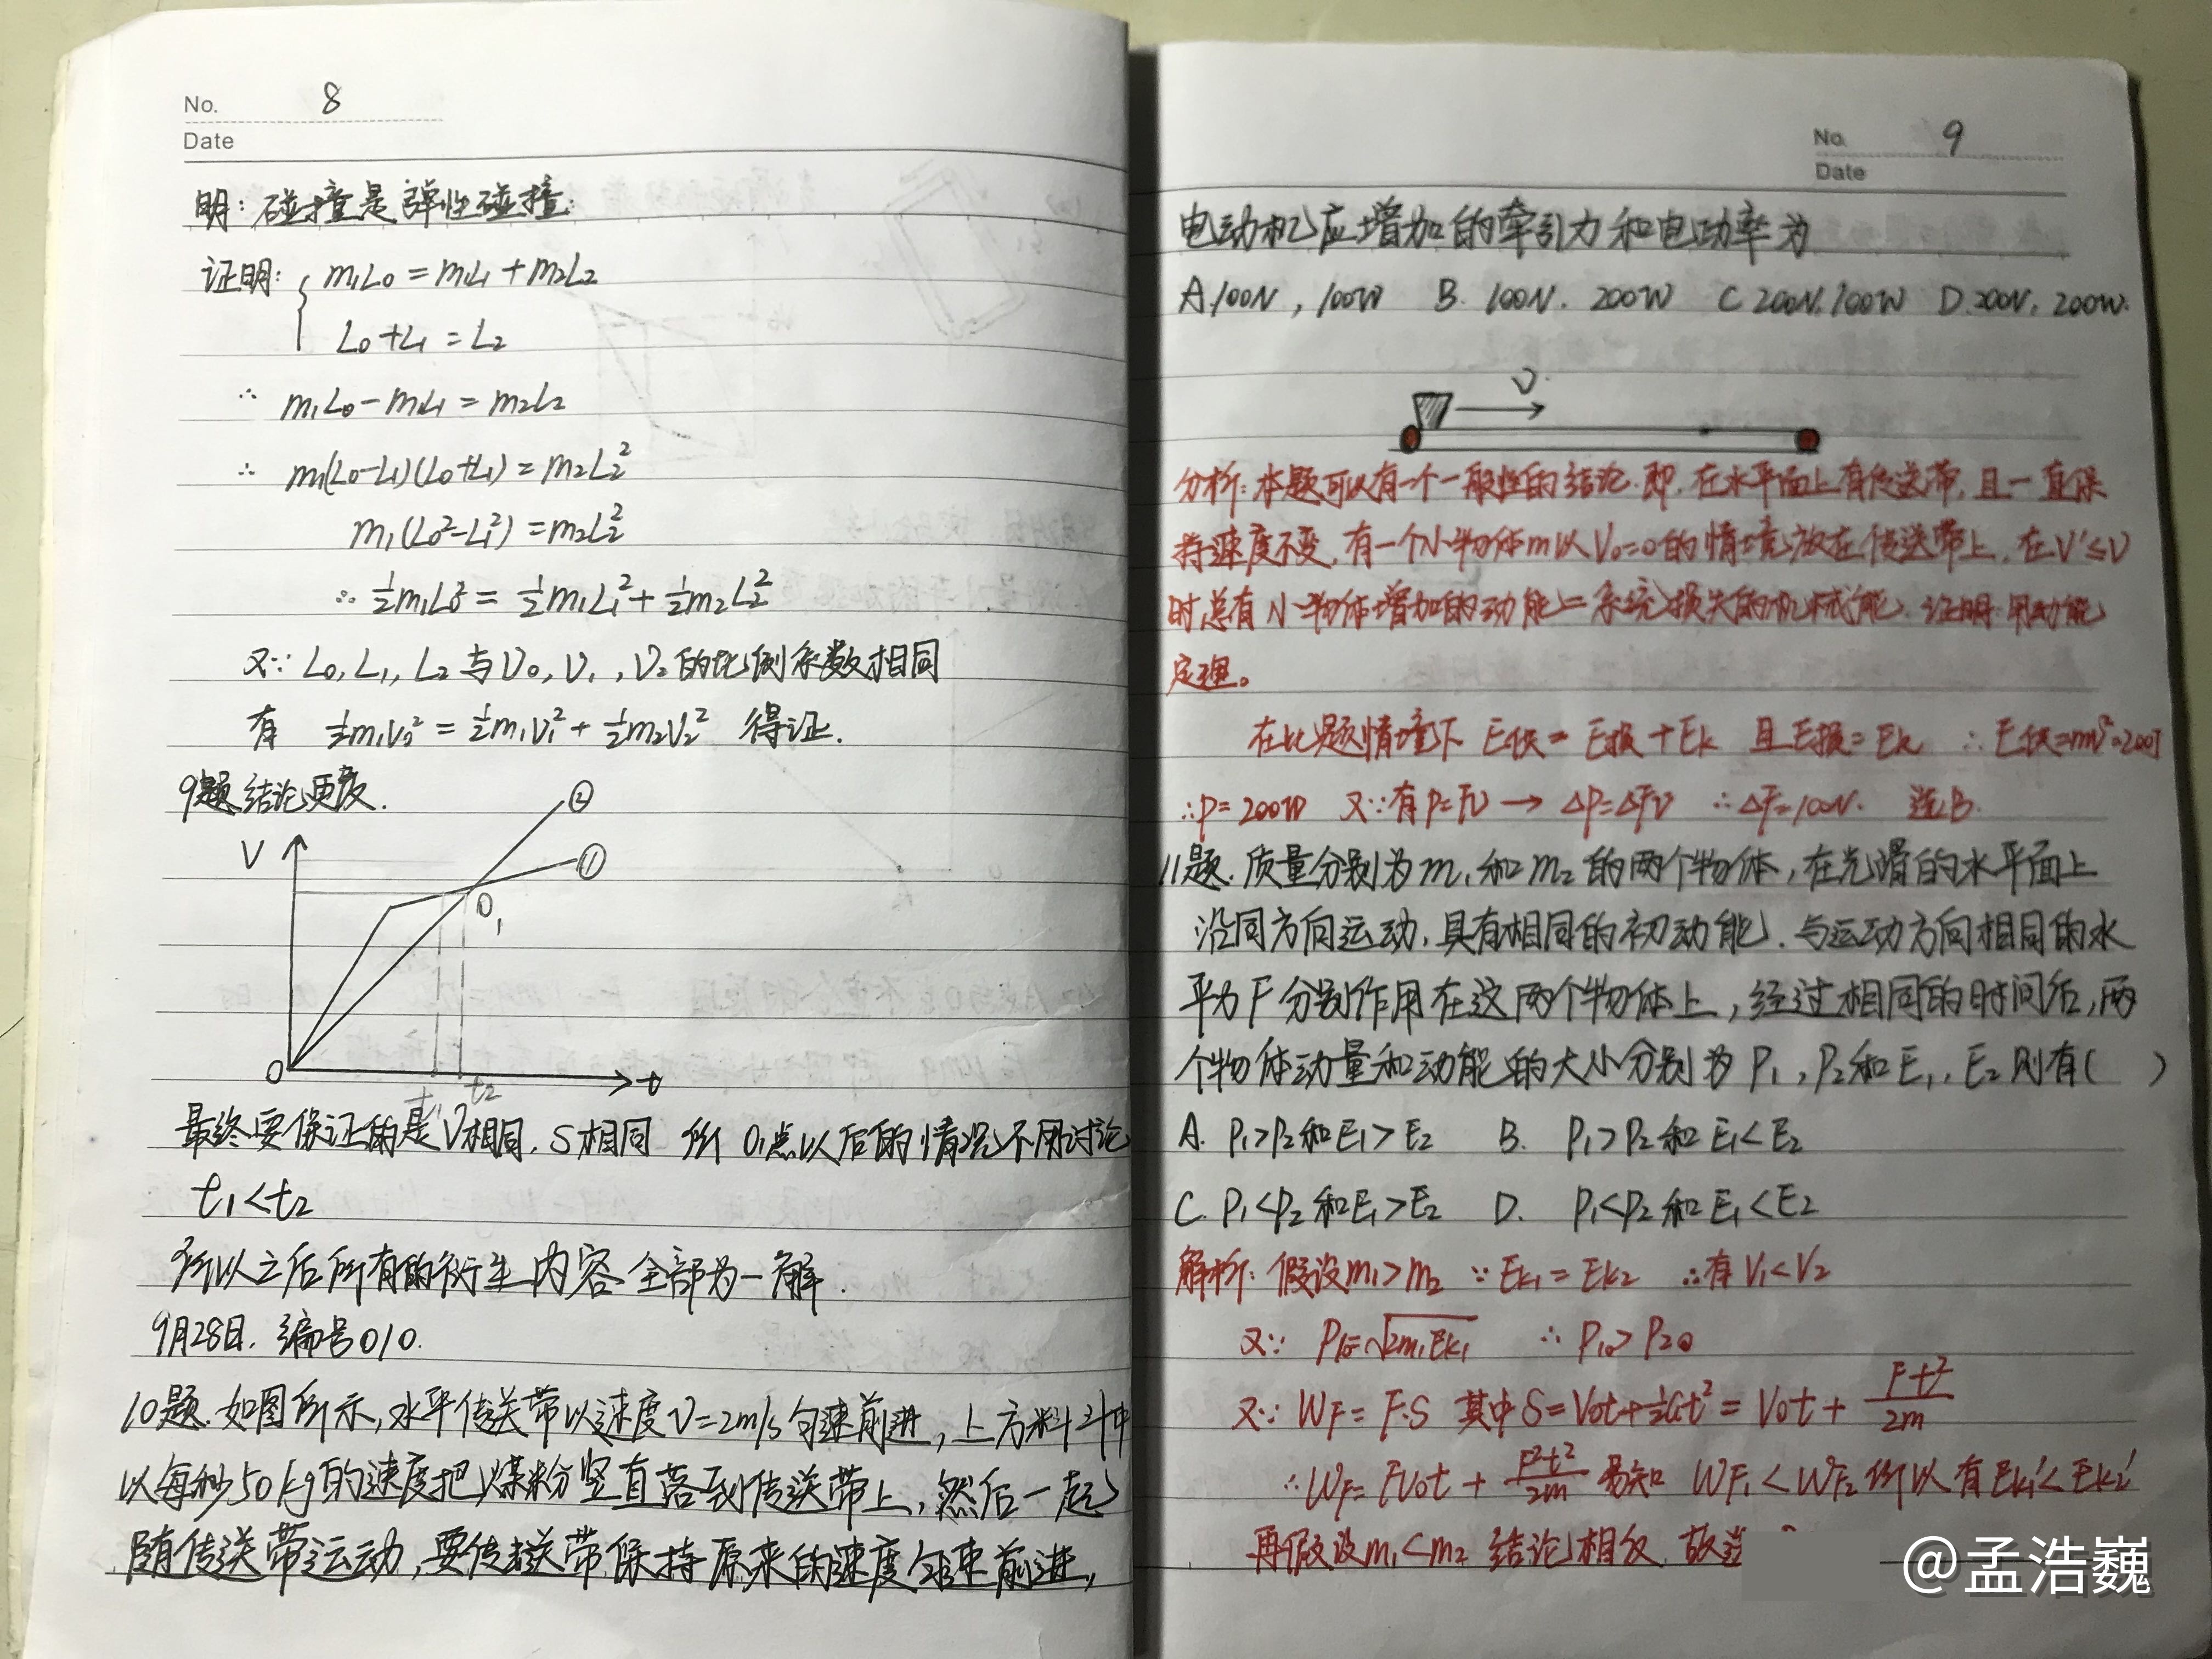 No. 8
Date
明:碰撞是弹性碰撞.
证明: m₁L₀=m₁L₁+m₂L₂
L₀+L₁=L₂
∴ m₁L₀-m₁L₁=m₂L₂
∴ m₁(L₀-L₁)(L₀+L₁)=m₂L₂²
m₁(L₀²-L₁²)=m₂L₂²
∴ ½m₁L₀²=½m₁L₁²+½m₂L₂²
又∵ L₀,L₁,L₂与V₀,V₁,V₂的比例系数相同
有 ½m₁V₀²=½m₁V₁²+½m₂V₂² 得证.
9题结论更改.
②
V
①
O₁
O t₁ t₂ t
最终要保证的是V相同,S相同 所 O₁点以后的情况不用讨论
t₁<t₂
所以之后所有的衍生内容全部为一解.
9月28日. 编号010.
10题.如图所示,水平传送带以速度V=2m/s匀速前进,上方料斗中
以每秒50kg的速度把煤粉竖直落到传送带上,然后一起
随传送带运动,要传送带保持原来的速度匀速前进,
No. 9
Date
电动机应增加的牵引力和电功率为
A.100N,100W B. 100N. 200W C 200N.100W D.200N. 200W.
V
分析:本题可以有一个一般性的结论.即.在水平面上有传送带,且一直保
持速度不变,有一个小物体m以V₀=0的情境放在传送带上,在V'≤V
时总有小物体增加的动能=系统损失的机械能.证明:用动能
定理。
在此题情境下 E供=E损+Ek 且E损=Ek ∴E供=mv²=200J
∴P=200W 又∵有P=FV→ΔP=ΔFV ∴ΔF=100N. 选B.
11题.质量分别为m₁和m₂的两个物体,在光滑的水平面上
沿同方向运动,具有相同的初动能.与运动方向相同的水
平力F分别作用在这两个物体上,经过相同的时间后,两
个物体动量和动能的大小分别为P₁,P₂和E₁,E₂则有( )
A. P₁>P₂和E₁>E₂ B. P₁>P₂和E₁<E₂
C. P₁<P₂和E₁>E₂ D. P₁<P₂和E₁<E₂
解析:假设m₁>m₂ ∵Ek₁=Ek₂ ∴有V₁<V₂
又∵ P₁₀=√2m₁Ek₁ ∴P₁₀>P₂₀
又∵ WF=F·S 其中S=V₀t+½at²=V₀t+Ft²/2m
∴WF=FV₀t+F²t²/2m 易知 WF₁<WF₂所以有Ek₁'<Ek₂'
再假设m₁<m₂结论相反.故选
@孟浩巍